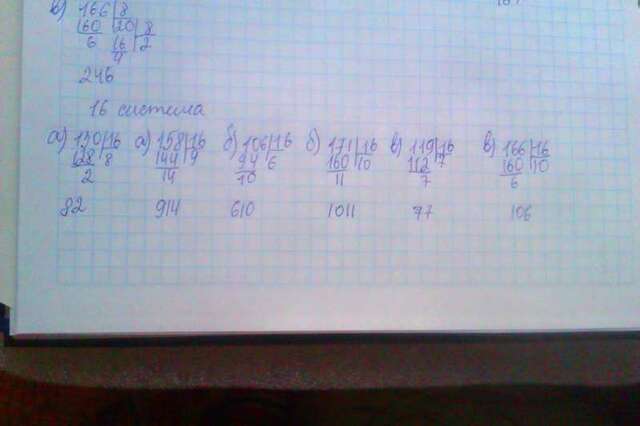 в) 166 | 8
160 20 | 8
6 16 2
4
246
16 система
а) 130 | 16 а) 158 | 16 б) 106 | 16 б) 171 | 16 в) 119 | 16 в) 166 | 16
128 8 144 9 94 6 160 10 112 7 160 10
2 14 10 11 7 6
82 914 610 1011 77 106